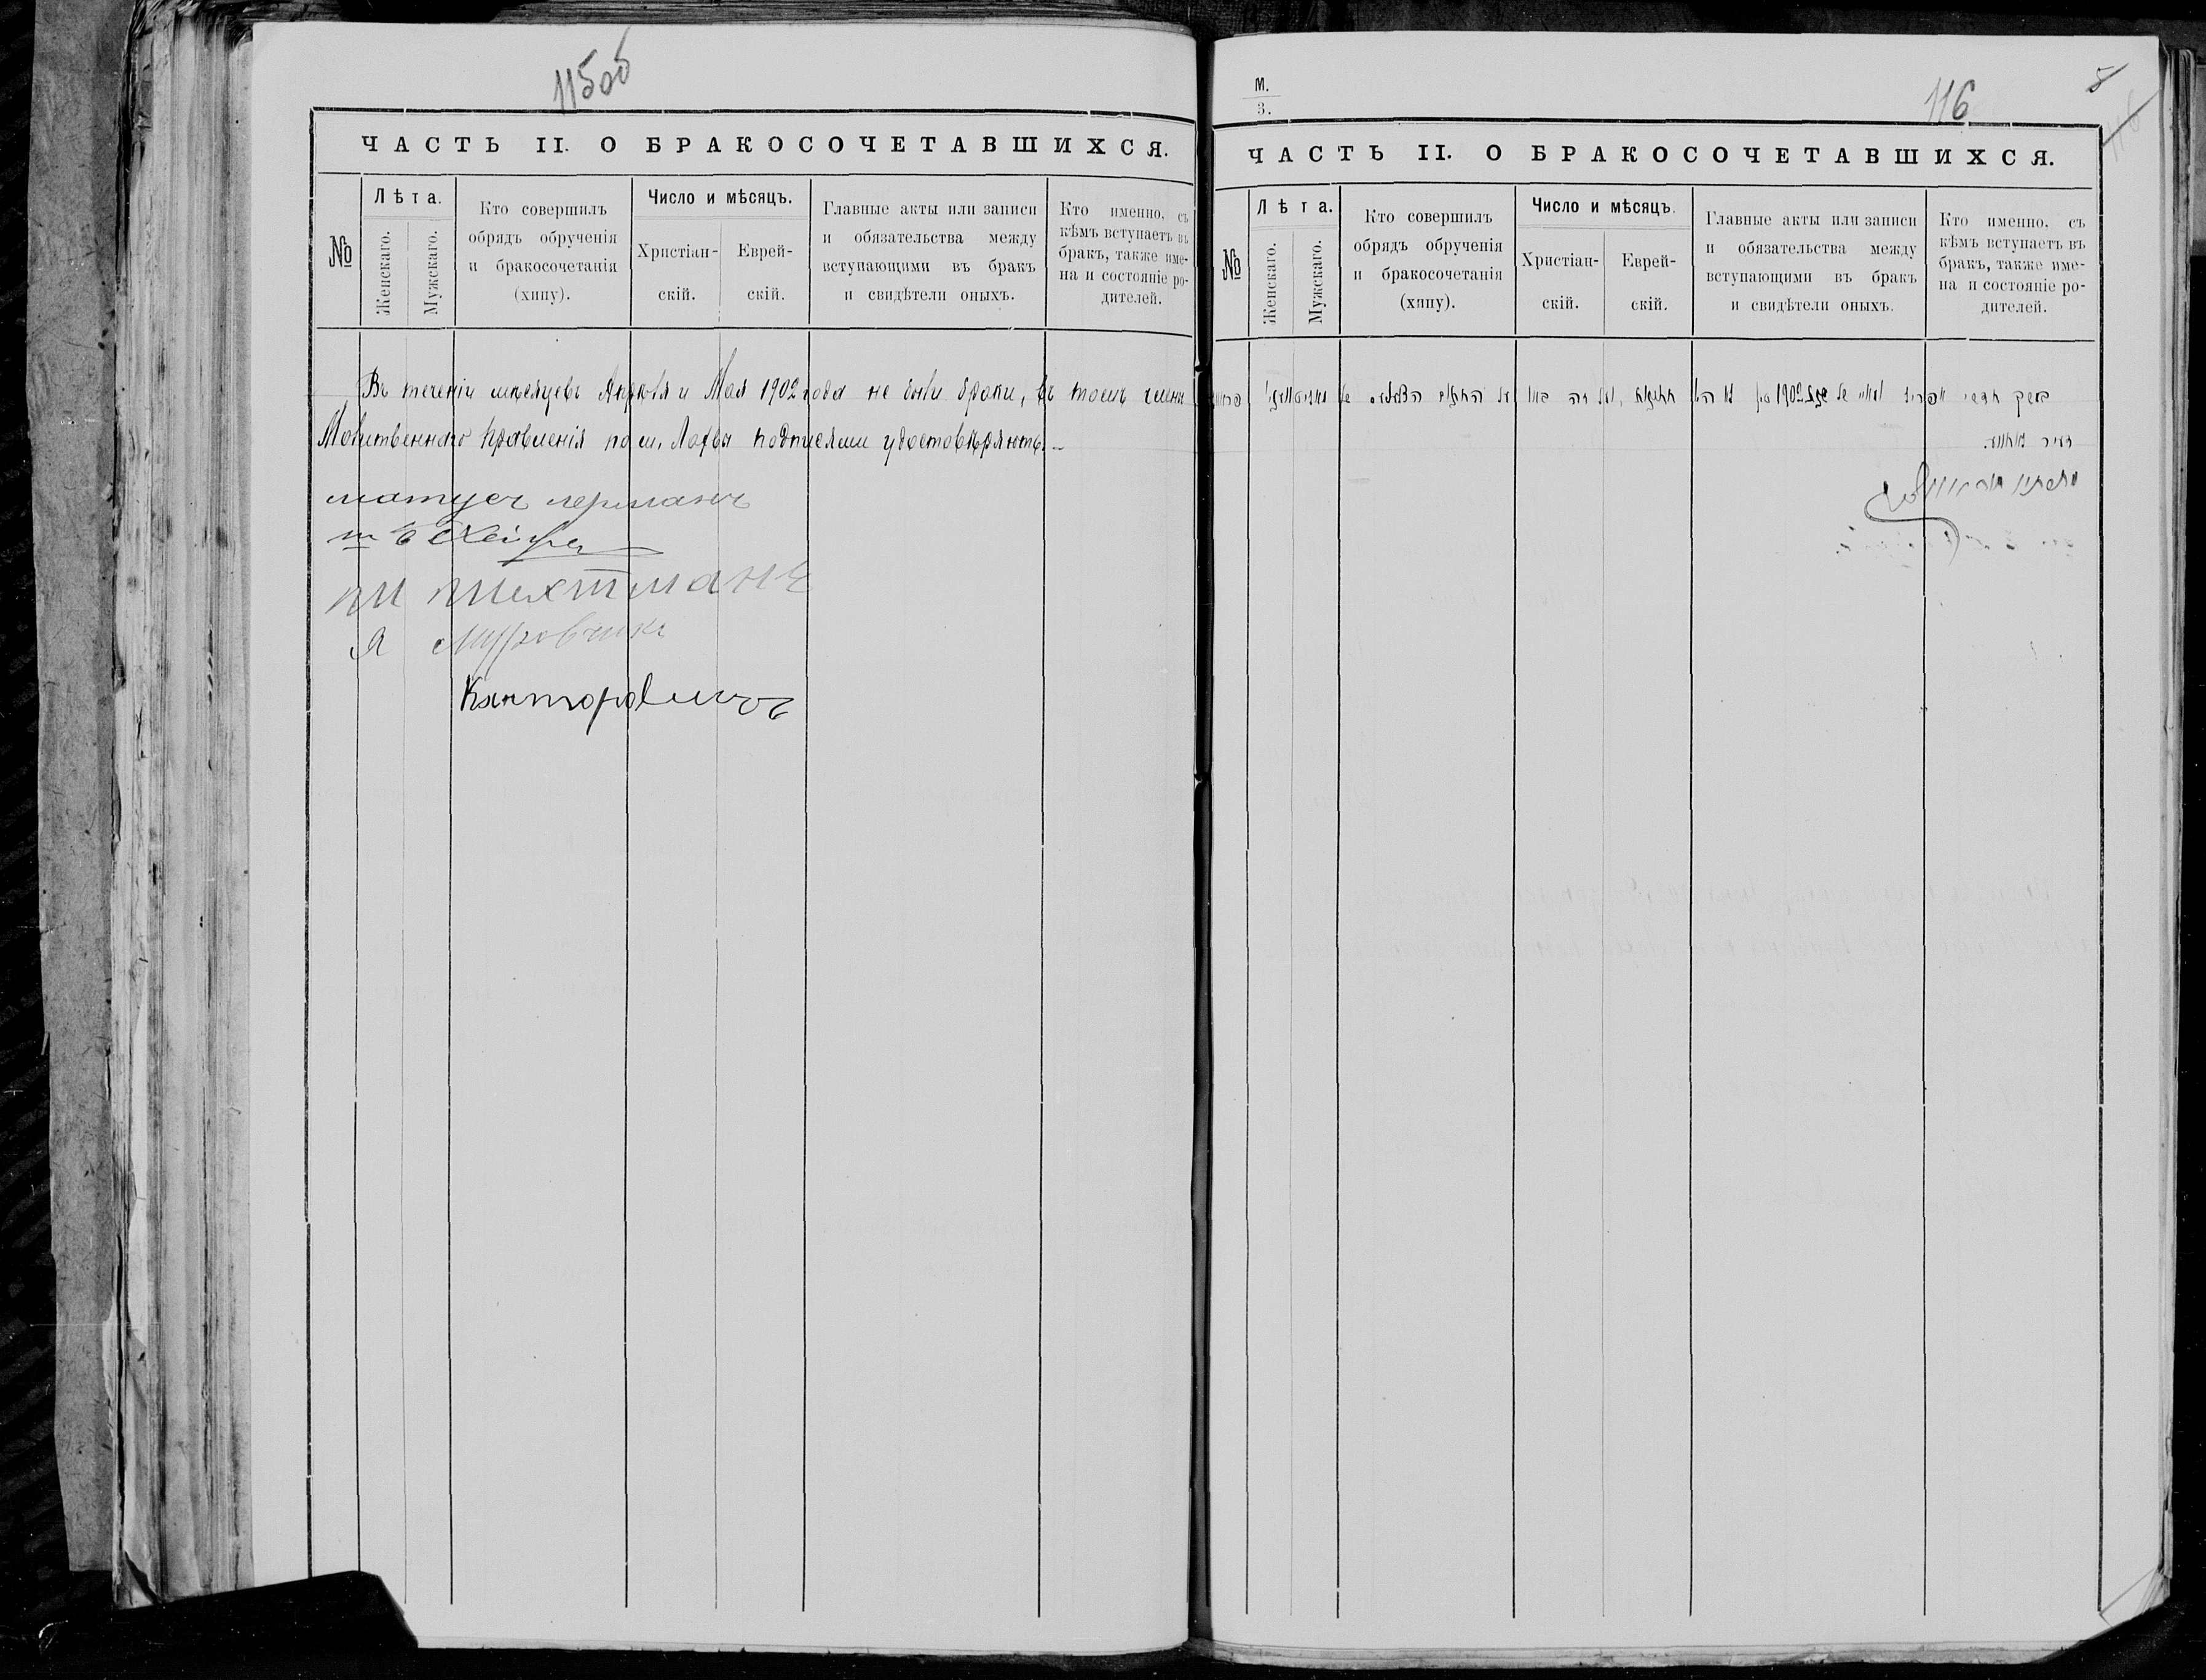 115об
ЧАСТЬ II. О БРАКОСОЧЕТАВШИХСЯ.
№
Лѣта.
Женскаго.
Мужскаго.
Кто совершилъ
обрядъ обрученія
и бракосочетанія
(хипу).
Число и мѣсяцъ.
Христіан-
скій.
Еврей-
скій.
Главные акты или записи
и обязательства между
вступающими въ бракъ
и свидѣтели оныхъ.
Кто именно, съ
кѣмъ вступаетъ въ
бракъ, также име-
на и состояніе ро-
дителей.
Въ теченіи мѣсяцевъ Апрѣля и Мая 1902 года не были браки, въ томъ члены
Молитвеннаго Правленія по м. Лахвы подписями удостовѣряютъ.
матусъ лерманъ
Шехтманъ
Я Муровчикъ
Канторовичъ
М.
3.
116
8
ЧАСТЬ II. О БРАКОСОЧЕТАВШИХСЯ.
№
Лѣта.
Женскаго.
Мужскаго.
Кто совершилъ
обрядъ обрученія
и бракосочетанія
(хипу).
Число и мѣсяцъ.
Христіан-
скій.
Еврей-
скій.
Главные акты или записи
и обязательства между
вступающими въ бракъ
и свидѣтели оныхъ.
Кто именно, съ
кѣмъ вступаетъ въ
бракъ, также име-
на и состояніе ро-
дителей.
במשך חדשי אפריל ומאי של שנת 1902 לא היו חתונות, ועל זה באנו על החתום